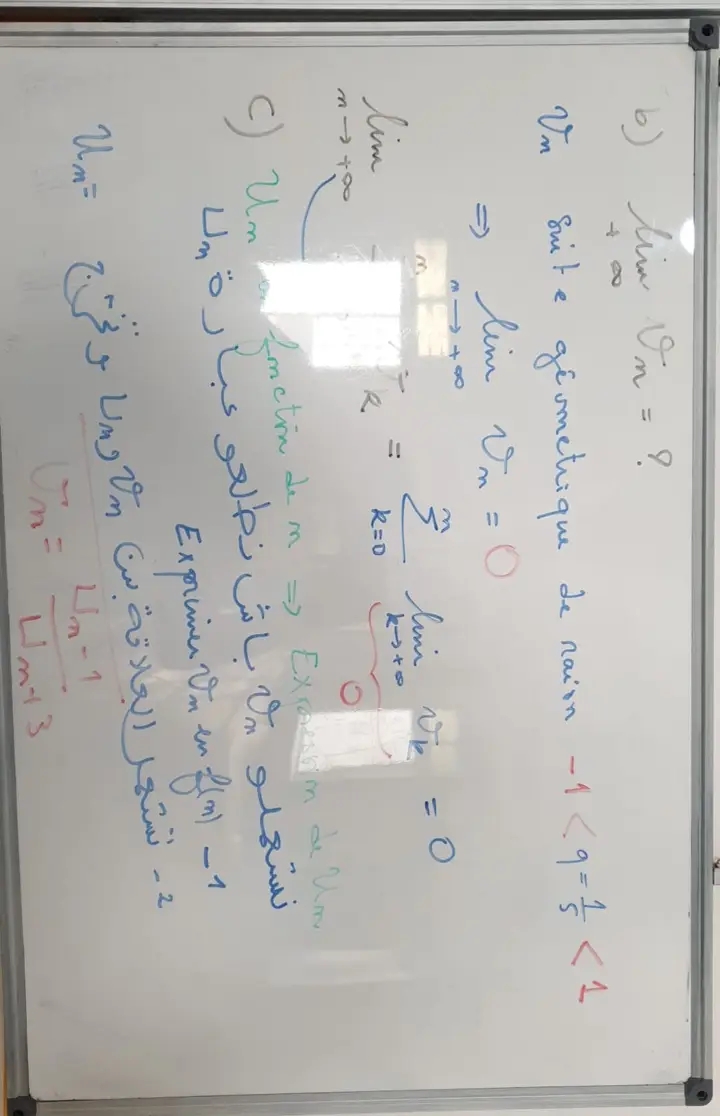 b) lim Vn = ?
+∞
Vn suite géometrique de raison -1 < q = 1/5 < 1
⇒ lim Vn = 0
n→+∞
lim k = Σ lim Vk = 0
n→+∞ n k=0 k→+∞
0
c) Un fonction de n ⇒ Expression de Un
نستعملو Vn باش نطلعو عبارة Un
1 - Exprimer Vn en f(n)
2 - نستعمل العلاقة بين Vn و Un و
Un =
Vn = Un - 1 / Un + 3